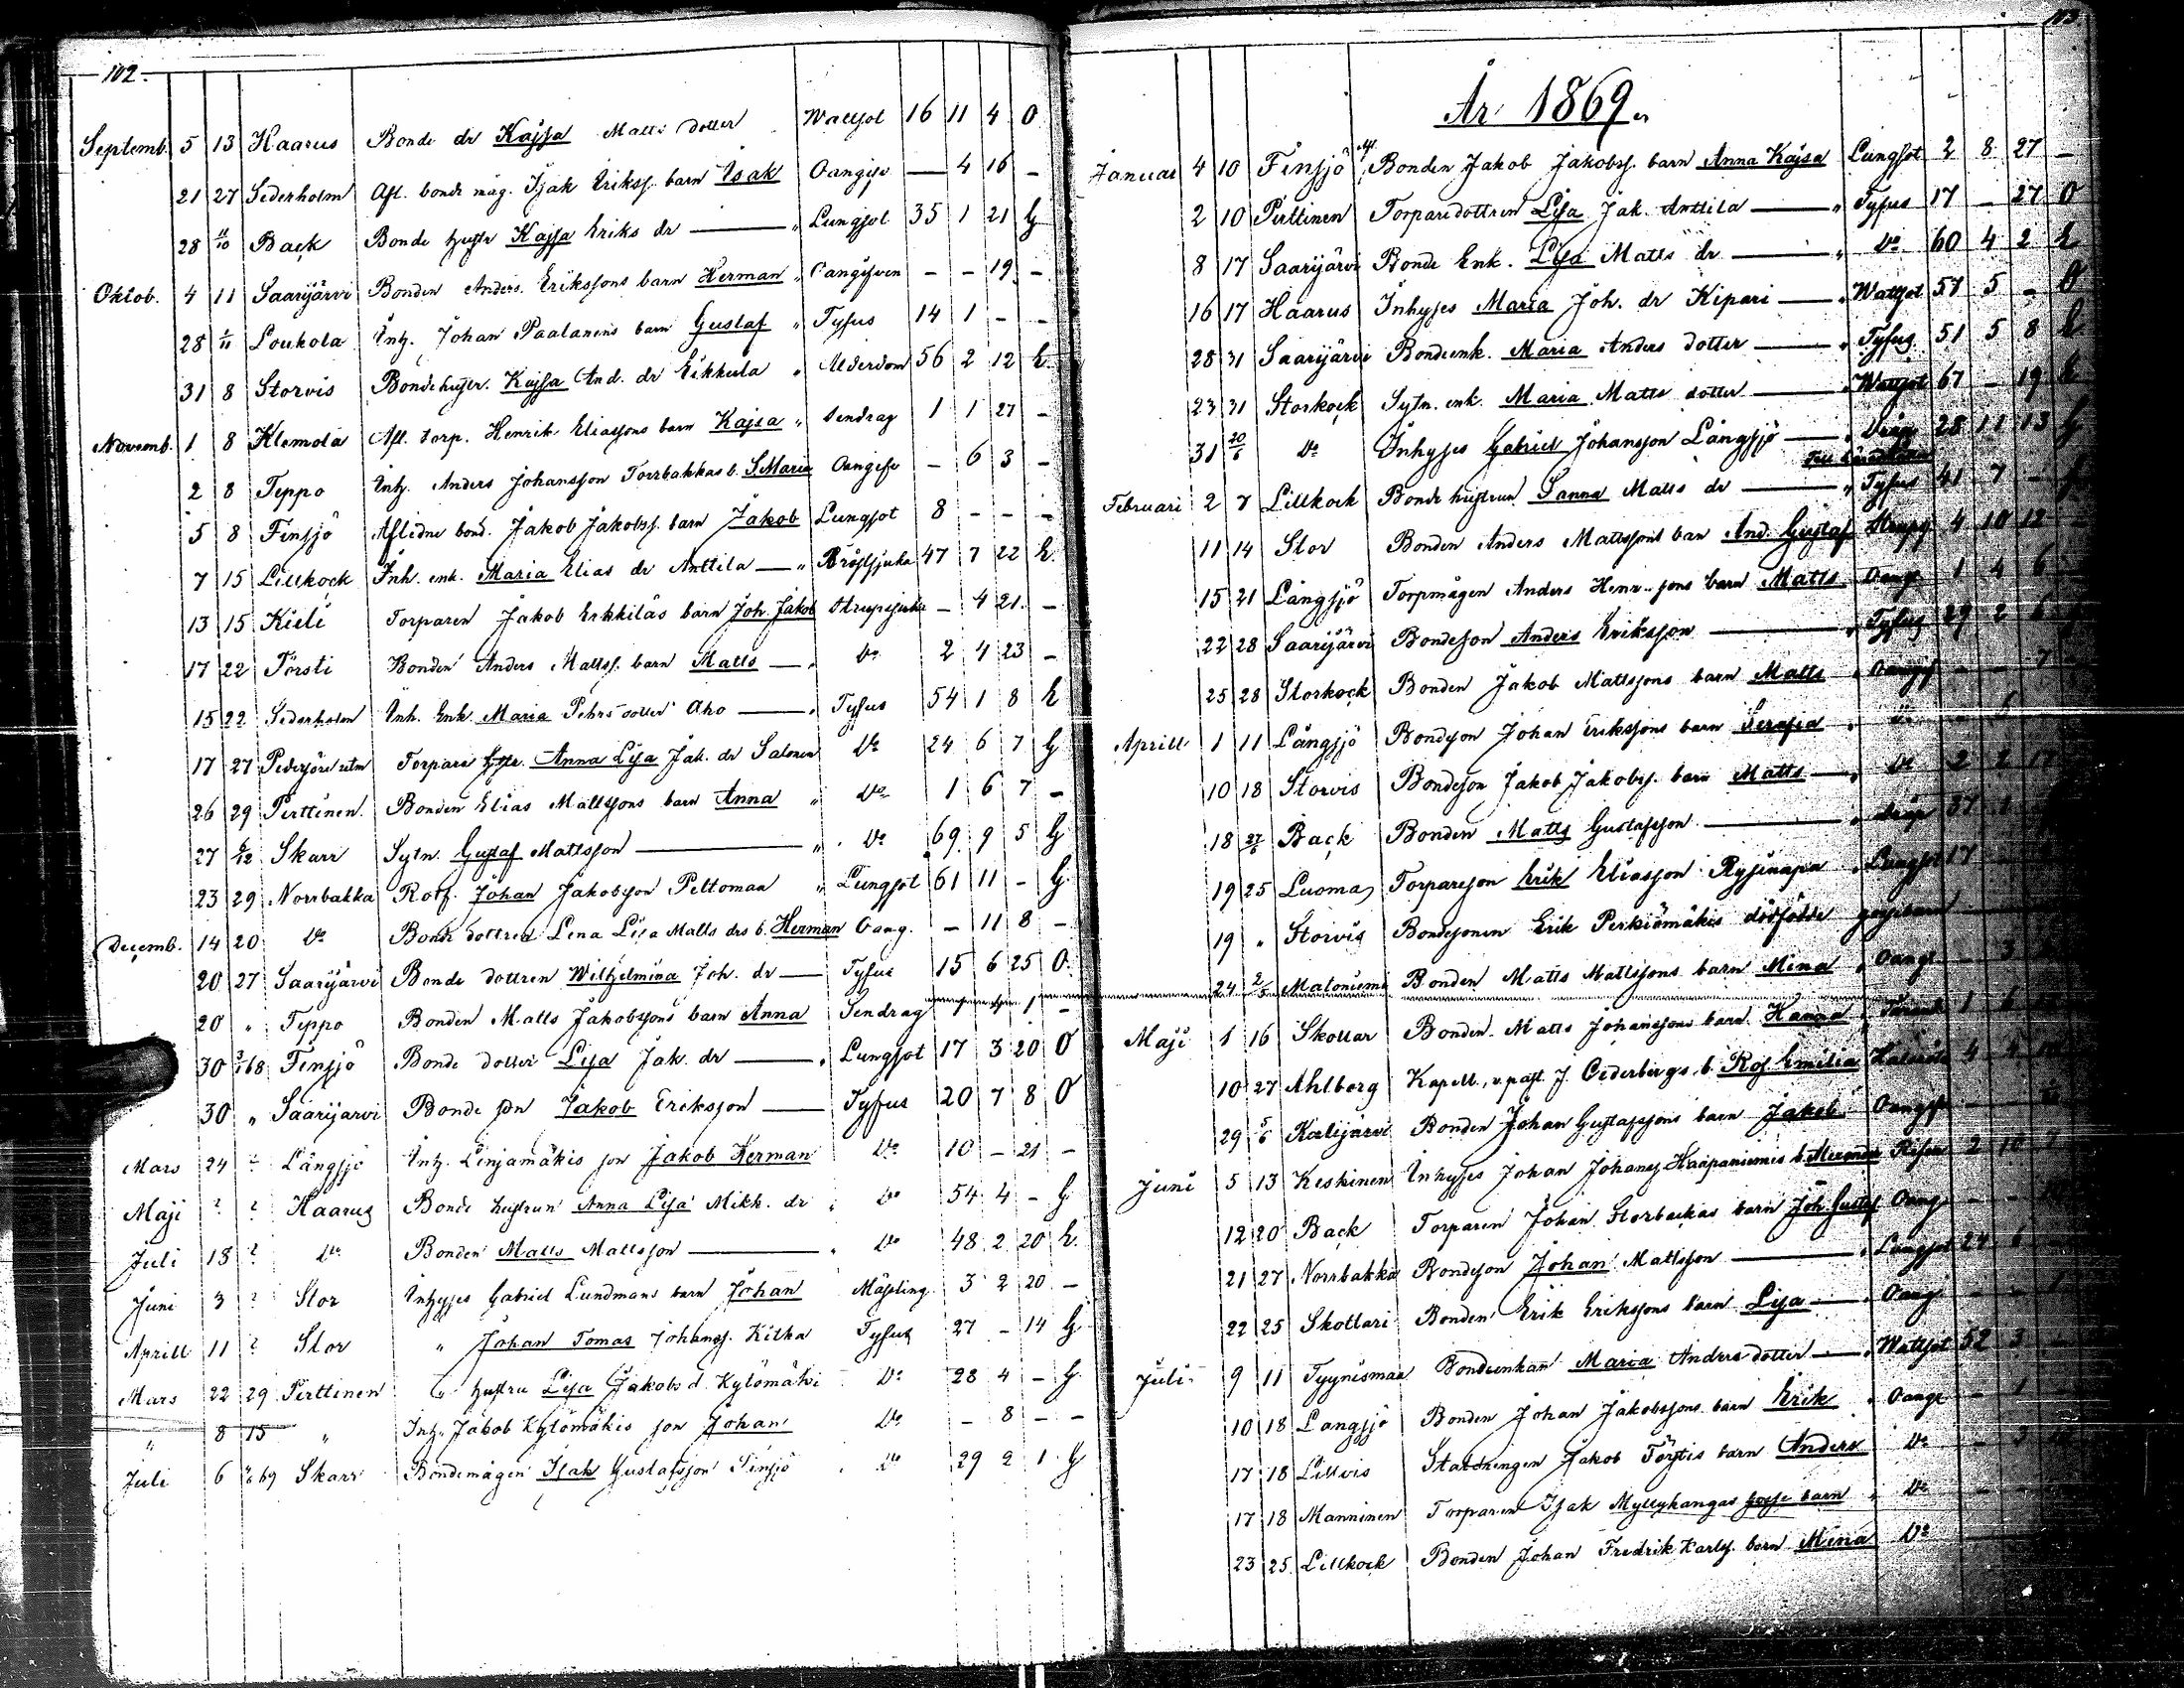 102.
Septemb. 5 13 Haarus Bonde dr Kajsa Matts dotter Wattsot 16 11 4 O
21 27 Sederholm Afl. bonde måg. Isak Erikss. barn Isak Oangifv — 4 16 -
28 11/10 Back Bonde hustr Kajsa Eriks dr — " Lungsot 35 1 21 G
Oktob. 4 11 Saarijärvi Bonden Anders Erikssons barn Herman " Oangifven - - 19 -
28 1/11 Loukola Inh. Johan Paalanens barn Gustaf " Tyfus 14 1 - -
31 8 Storvis Bondehustr. Kajsa And. dr Eikkula " Ålderdom 56 2 12 h.
Novemb. 1 8 Klemola Afl. torp. Henrik Eliassons barn Kajsa " Sendrag 1 1 27 -
2 8 Teppo Inh. Anders Johansson Torrbakkas b. S Maria Oangifv - 6 3 -
5 8 Finsjö Aflidne bond. Jakob Jakobss. barn Jakob Lungsot 8 - - -
7 15 Lillkock Inh. enk. Maria Elias dr Anttila — " Bröstsjuka 47 7 22 h.
13 15 Kieli Torparen Jakob Erkkiläs barn Joh. Jakob Strupsjuka - 4 21. -
17 22 Törsti Bonden Anders Matts. barn Matts — " Do 2 4 23 -
15 22 Sederholm Inh. Enk Maria Pehrs dotter Aho — " Tyfus 54 1 8 h
17 27 Pedersöre Torpare hstr. Anna Lisa Jak. dr Salonen Do 24 6 7 G
26 29 Perttinen. Bonden Elias Mattssons barn Anna " Do 1 6 7 -
27 6/12 Skarr Sytn. Gustaf Mattsson — " Do 69 9 5 G
23 29 Norrbakka Rotf. Johan Jakobsson Peltoman " Lungsot 61 11 - G
Decemb. 14 20 Do Bonde dottren Lena Lisa Matts drs b. Herman Oang. - 11 8 -
20 27 Saarijärvi Bonde dottren Wilhelmina Joh. dr — Tyfus 15 6 25 O.
20 " Teppo Bonden Matts Jakobssons barn Anna Sendrag 1 4 1 -
30 Finsjö Bonde dotter Lisa Jak. dr — " Lungsot 17 3 20 O
30 " Saarijarvi Bonde son Jakob Eriksson — Tyfus 20 7 8 O
Mars 24 ? Långsjö Inh. Linjamäkis son Jakob Herman Do 10 - 21 -
Maji ? ? Haarus Bonde hustrun Anna Lisa Mikk. dr " Do 54 4 - G
Juli 18 ? Do Bonden Matts Mattsson — " Do 48 2 20 h.
Juni 3 ? Stor Inhyses Gabriel Lundmans barn Johan Mäsling 3 2 20 -
Aprill 11 ? Stor " Johan Tomas Johanss. Kitka Tyfus 27 - 14 G
Mars 22 29 Perttinen " hustru Lisa Jakobs d. Kylömäki Do 28 4 - G
" 8 15 " Inh. Jakob Kylömäkis son Johan Do - 8 - -
Juli 6 Skarr Bondemågen Isak Gustafsson Finsjö " Do 29 2 1 G
103
År 1869.
Januar 4 10 Finsjö Bonden Jakob Jakobss. barn Anna Kajsa Lungsot 2 8 27 -
2 10 Perttinen Torparedottren Lisa Jak. Anttila — " Tyfus 17 - 27 O
8 17 Saarijärvi Bonde Enk. Lisa Matts dr — " Do 60 4 2 h
16 17 Haarus Inhyses Maria Joh. dr Kipari — " Wattsot 57 5 - O
28 31 Saarijärvi Bondeenk. Maria Anders dotter — " Tyfus 51 5 8 h
23 31 Storkock Sytn. enk. Maria Matts dotter — " Wattsot 67 - 19 h
31 Do Inhyses Gabriel Johansson Långsjö — " 28 11 13 G
Februari 2 7 Lillkock Bonde hustrun Sanna Matts dr — " Tyfus 41 7 -
11 14 Stor Bonden Anders Mattssons bar And. Gustaf Strupsj 4 10 12
15 21 Långsjö Torpmågen Anders Henr..sons barn Matts Oangf 1 4 6
22 28 Saarijärvi Bondeson Anders Eriksson — " Tyfus 29 2 6
25 28 Storkock Bonden Jakob Mattssons barn Matts " Oangif - - 7
Aprill 1 11 Långsjö Bondeson Johan Erikssons barn Serafia " Do - 6
10 18 Storvis Bondeson Jakob Jakobss. barn Matts — " Do 2 2 17
18 Back Bonden Matts Gustafsson — " 37 1
19 25 Luoma Torpareson Erik Eliasson Rysinapa " Lungsot 17
19 " Storvis Bondesonen Erik Perkiömäkis dödfödde gossebarn
24 2/5 Maloniemi Bonden Matts Mattssons barn Mina " Oangf - 3
Maji 1 16 Skottar Bonden Matts Johanssons barn Hanna " 1 6
10 27 Ahlborg Kapell., v. past. J. Cederbergs b. Ros. Emilia Halssot 4 4
29 5/6 Kalijärvi Bonden Johan Gustafssons barn Jakob Oangf - -
Juni 5 13 Keskinen Inhyses Johan Johanss Haapaniemis b. 2 10
12 20 Back Torparen Johan Storbackas barn Joh. Gustaf Oang - -
21 27 Norrbakka Bondeson Johan Mattsson — " Lungsot 24 6
22 25 Skottari Bonden Erik Erikssons barn Lisa — " Oang - -
Juli 9 11 Tyynismaa Bondeenkan Maria Anders dotter — " Wattsot 52 3
10 18 Langsjö Bonden Johan Jakobssons barn Erik " Oangf - 1
17 18 Lillvis Jakob Törstis barn Anders Do -
17 18 Manninen Torparen Isak Myllykangas gosse barn " Do - -
23 25 Lillkock Bonden Johan Fredrik Karlss. barn Mina Do